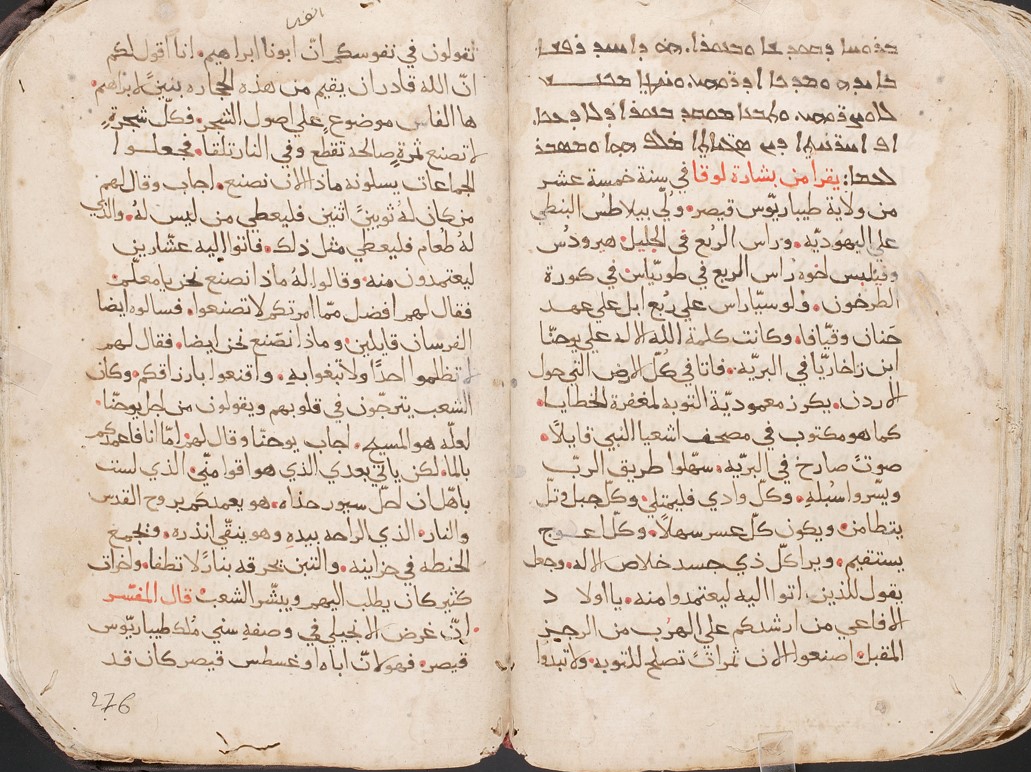 يقرا من بشارة لوقا في سنة خمسة عشر
من ولاية طيباريوس قيصر وُلي بيلاطس البنطي
علي اليهوديّه وراس الربع في الجليل هيرودس
وفيلبس اخوه راس الربع في طوريّاس في كورة
الطرخون ولوسيّاس علي رُبع ابل علي عهد
حنان وقيّافا وكانت كلمة اللّه الاله علي يوحنّا
ابن زاخاريّا في البريّه فاتا في كلّ الارض التي حول
الاردن يكرز معموديّة التوبه لمغفرة الخطايا
كما هو مكتوب في مصحف اشعيا النبي قايلاً
صوتٌ صارخ في البريّه سهّلوا طريق الربّ
ويسّروا سُبله وكلّ وادي فليمتلي وكلّ جبل وتلّ
يتطامن ويكون كلّ عسر سهلاً وكلّ عوج
يستقيم ويرا كلّ ذي جسد خلاص الاله وجعل
يقول للذين اتوا اليه ليعتمدوا منه يا اولاد
الافاعي من ارشدكم علي الهرب من الرجز
المقبل اصنعوا الان ثمرات تصلح للتوبه ولا تبدوا
تقولون في نفوسكم انّ ابونا ابراهيم انا اقول لكم
انّ اللّه قادر ان يقيم من هذه الحجاره بنينً لابراهيم
ها الفاس موضوع علي اصول الشجر فكلّ شجرةٍ
لا تصنع ثمرةٍ صالحة تقطع وفي النار تلقا فجعلوا
الجماعات يسلونه ماذا الان نصنع اجاب وقال لهم
من كان لهُ ثوبين اثنين فليعطي من ليس لهُ والذي
له طعام فليعطي مثل ذلك فاتوا اليه عشّارين
ليعتمدون منه وقالوا له ماذا نصنع نحن يا معلّم
فقال لهم افضل ممّا امرتكم لا تصنعوا فسالوه ايضا
الفرسان قايلين وماذا نصنع نحن ايضا فقال لهم
لا تظلموا احدًا ولا تبغوا به واقنعوا بارزاقكم وكان
الشعب يترجّون في قلوبهم ويقولون من اجل يوحنّا
لعلّه هو المسيح اجاب يوحنّا وقال لهم امّا انا فاعمّدكم
بالما لكن ياتي بعدي الذي هو اقوا منّي الذي لست
باهل ان احلّ سيور حذاه هو يعمدكم بروح القدس
والنار الذي الراحه بيده وهو ينقّي اندره ويجمع
الحنطه في خزاينه والتبن يحرقه بنارً لا تطفا واخرات
كثير كان يطلب اليهم ويبشّر الشعب قال المفسّر
انّ غرض الانجيلي في وصفه سني مُلك طيباريّوس
قيصر فهو لانّ اباه اوغسطس قيصر كان قد
276